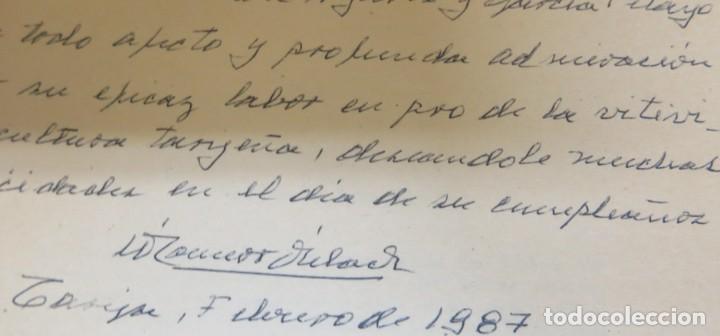 y García
todo afecto y profunda admiración
su eficaz labor en pro de la vitivi-
cultura tarijeña, deseandole muchas
cidades en el dia de su cumpleaños
Tarija, Febrero de 1987
todocoleccion